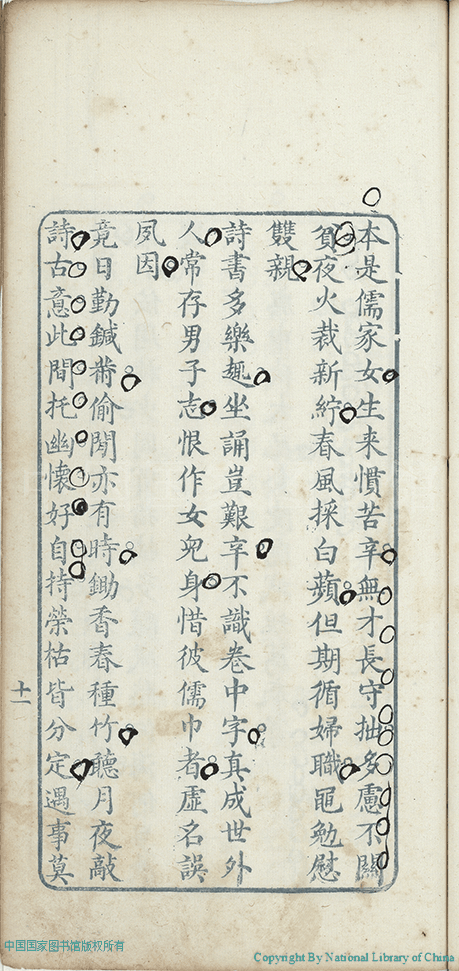 本是儒家女生来慣苦辛無才長守拙多慮不關
貧夜火裁新紵春風採白蘋但期循婦職黽勉慰
雙親
詩書多樂趣坐誦豈艱辛不識卷中字真成世外
人常存男子志恨作女兒身惜彼儒巾者虛名誤
夙因
竟日勤鍼黹偷閒亦有時鋤香春種竹聽月夜敲
詩古意此間托幽懷好自持榮枯皆分定遇事莫
十一
中国国家图书馆版权所有
Copyright By National Library of China